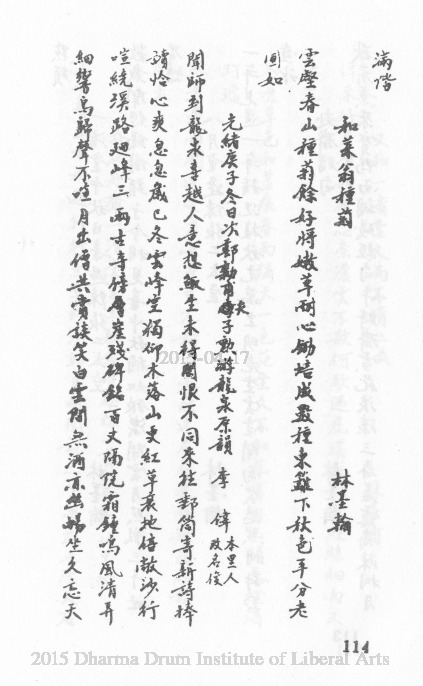 滿階
和菜翁種菊　林墨翰
雲壑春山種菊餘好將嫩草耐心鋤培成數種東籬下秋色平分老
圃如
光緒庚子冬日次鄭勷甫夫子勲游龍泉原韻　李　偉　本里人　改名俊
聞師到龍泉喜越人意想鯫生未得閒恨不同來往郵筒寄新詩捧
讀怡心爽忽忽歲已冬雲峰空獨仰木落山更紅草衰地倍敞沙行
喧繞溪路廻峰三兩古寺傍層崖殘碑銘百丈隔院霜鐘鳴風清弄
細響鳥歸聲不喧月出僧共賞談笑白雲間無酒亦幽暢坐久忘天
114
2015-03-17
2015 Dharma Drum Institute of Liberal Arts